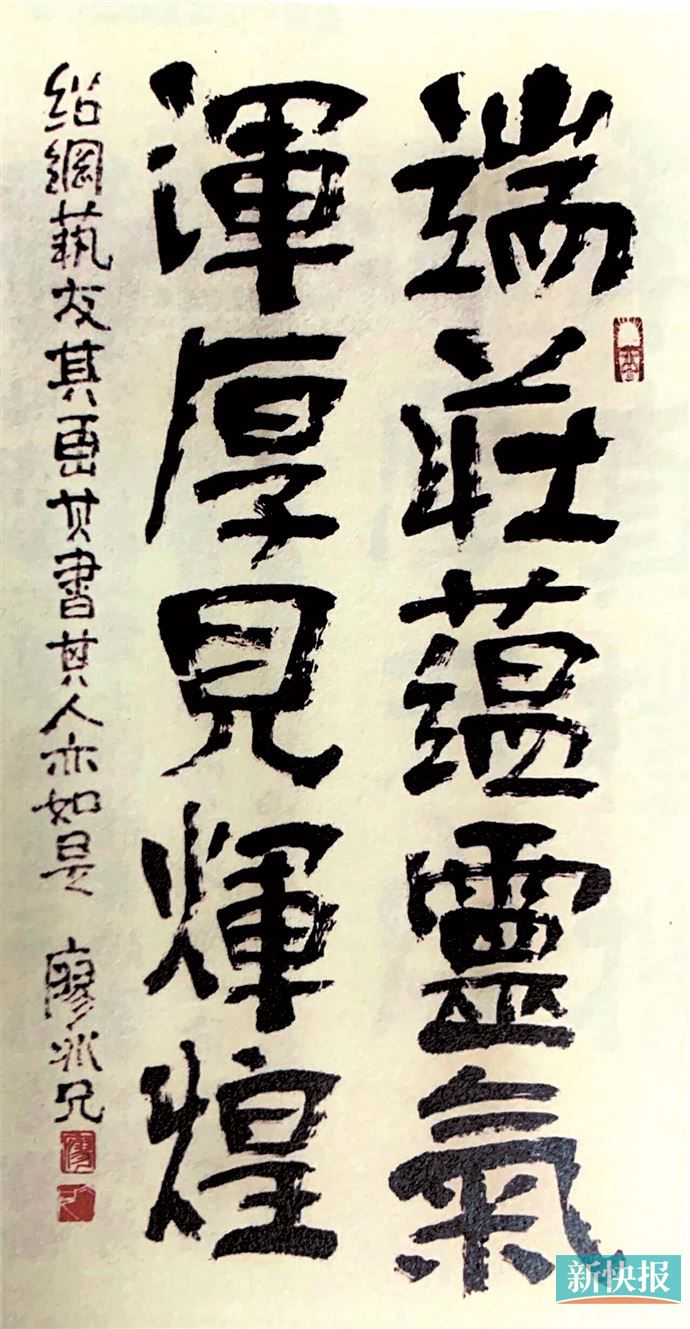 端莊蘊靈氣
渾厚見輝煌
紹綱藝友其畫其書其人亦如是 廖冰兄
新快报